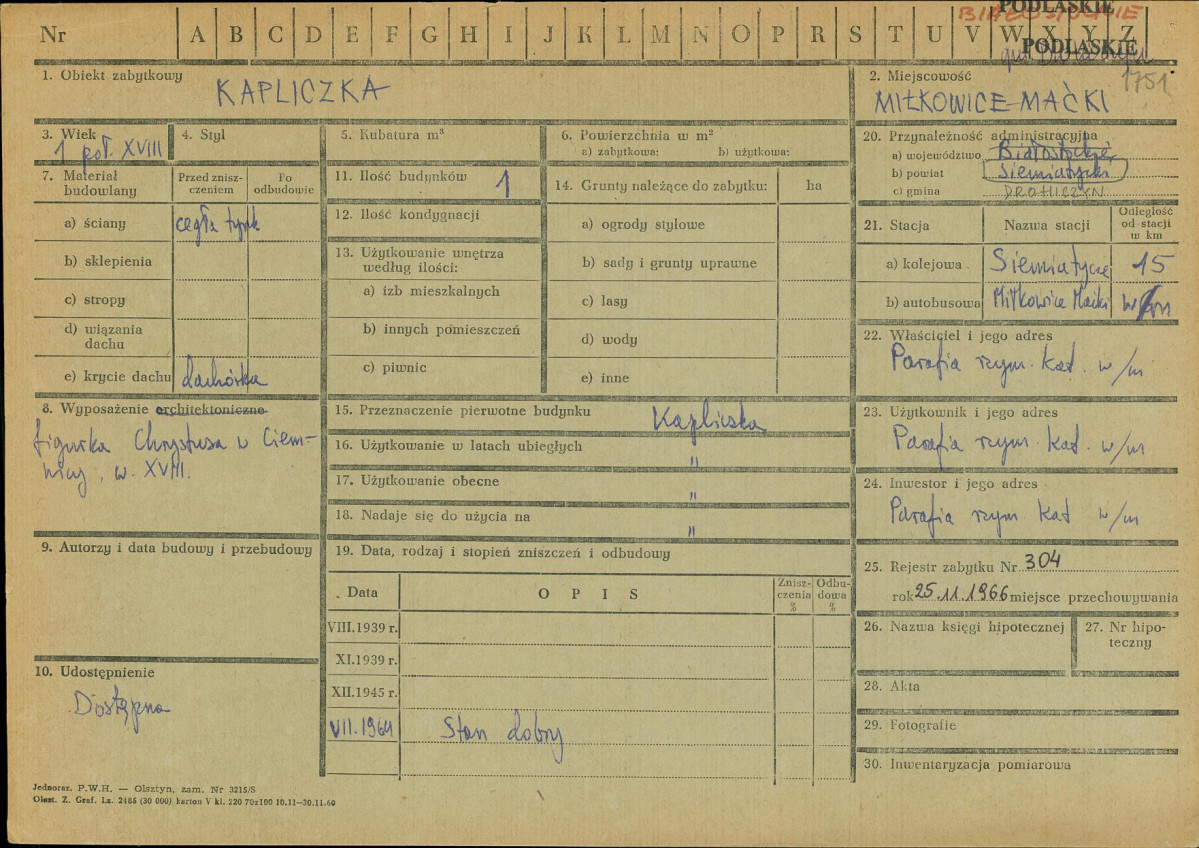 BIAŁOSTOCKIE
PODLASKIE
Nr A B C D E F G H I J K L M N O P R S T U V W X Y Z
PODLASKIE
1751
1. Obiekt zabytkowy
KAPLICZKA
2. Miejscowość
MIŁKOWICE-MAĆKI
3. Wiek
1 poł. XVIII
4. Styl
5. Kubatura m³
6. Powierzchnia w m²
a) zabytkowa: b) użytkowa:
7. Materiał budowlany
Przed zniszczeniem
Po odbudowie
a) ściany cegła tynk
b) sklepienia
c) stropy
d) wiązania dachu
e) krycie dachu dachówka
8. Wyposażenie architektoniczne
figurka Chrystusa w Ciem-
nicy, w. XVIII.
9. Autorzy i data budowy i przebudowy
10. Udostępnienie
Dostępna
11. Ilość budynków 1
12. Ilość kondygnacji
13. Użytkowanie wnętrza
według ilości:
a) izb mieszkalnych
b) innych pomieszczeń
c) piwnic
14. Grunty należące do zabytku: ha
a) ogrody stylowe
b) sady i grunty uprawne
c) lasy
d) wody
e) inne
15. Przeznaczenie pierwotne budynku Kapliczka
16. Użytkowanie w latach ubiegłych "
17. Użytkowanie obecne "
18. Nadaje się do użycia na "
19. Data, rodzaj i stopień zniszczeń i odbudowy
Data OPIS Znisz-czenia % Odbu-dowa %
VIII.1939 r.
XI.1939 r.
XII.1945 r.
VII.1964 Stan dobry
20. Przynależność administracyjna
a) województwo Białostockie
b) powiat Siemiatycki
c) gmina DROHICZYN
21. Stacja Nazwa stacji Odległość od stacji w km
a) kolejowa Siemiatycze 15
b) autobusowa Miłkowice Maćki
22. Właściciel i jego adres
Parafia rzym. kat. w/m
23. Użytkownik i jego adres
Parafia rzym. kat. w/m
24. Inwestor i jego adres
Parafia rzym kat w/m
25. Rejestr zabytku Nr 304
rok 25.11.1966 miejsce przechowywania
26. Nazwa księgi hipotecznej
27. Nr hipo-
teczny
28. Akta
29. Fotografie
30. Inwentaryzacja pomiarowa
Jednoraz. P.W.H. — Olsztyn, zam. Nr 3215/S
Olszt. Z. Graf. Lz. 2485 (30 000) karton V kl. 220 70x100 10.11—30.11.60